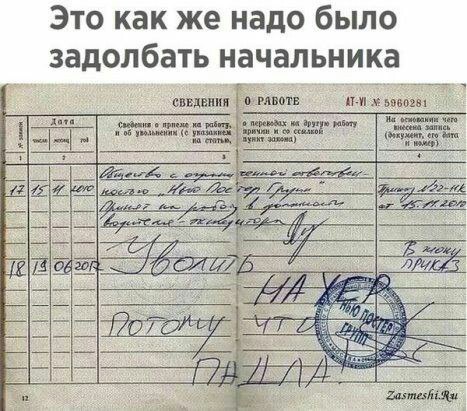 Это как же надо было
задолбать начальника
СВЕДЕНИЯ О РАБОТЕ АТ-VI № 5960281
№ записи
Дата
число месяц год
Сведения о приеме на работу, о переводах на другую работу
и об увольнении (с указанием причин и со ссылкой
на статью, пункт закона)
На основании чего
внесена запись
(документ, его дата
и номер)
1 2 3 4
Общество с ограниченной ответствен-
ностью „Нью Постер Групп"
17 15 11 2010 Принят на работу в должности Приказ №22-НК
водителя-экспедитора от 15.11.2010
18 19 06 2017 Уволить В жопу
ПРИКАЗ
НА ХЕР
ПОТОМУ ЧТО
НЬЮ ПОСТЕР
ГРУПП
ПАДЛА!
12
Zasmeshi.Ru